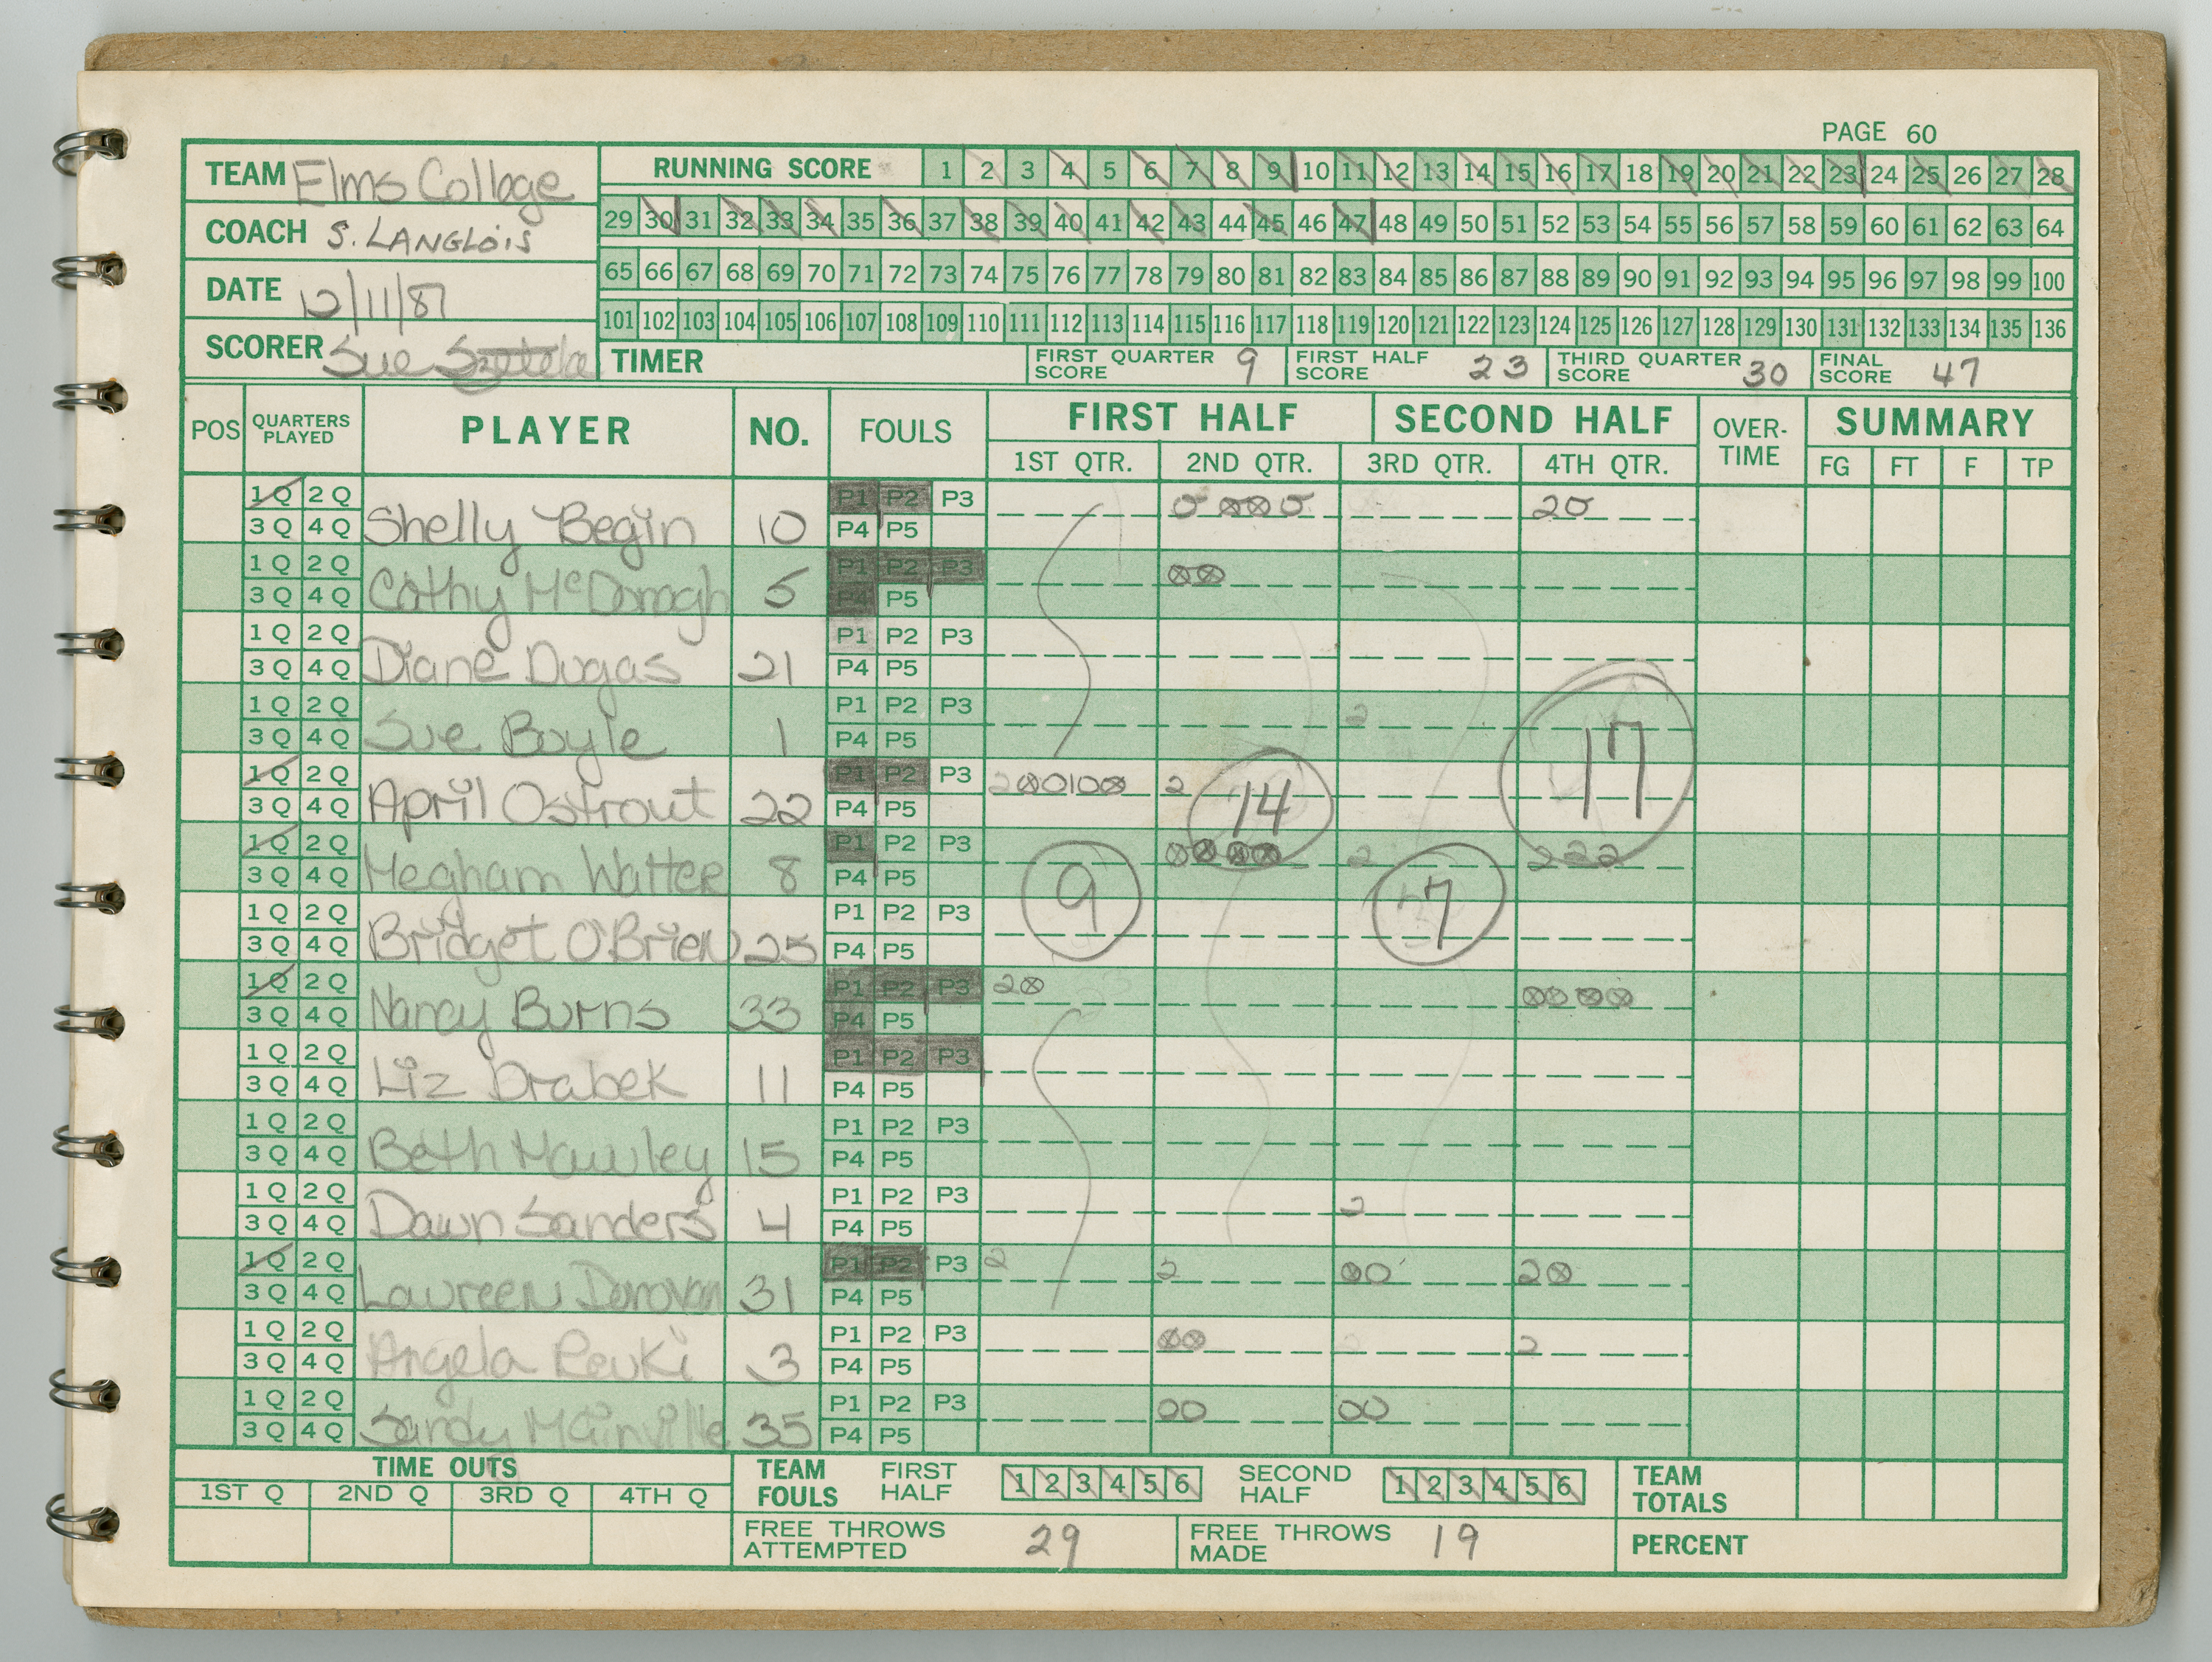 PAGE 60
TEAM Elms College
RUNNING SCORE 1 2 3 4 5 6 7 8 9 10 11 12 13 14 15 16 17 18 19 20 21 22 23 24 25 26 27 28
COACH S. LANGLOIS
29 30 31 32 33 34 35 36 37 38 39 40 41 42 43 44 45 46 47 48 49 50 51 52 53 54 55 56 57 58 59 60 61 62 63 64
DATE 12/11/87
65 66 67 68 69 70 71 72 73 74 75 76 77 78 79 80 81 82 83 84 85 86 87 88 89 90 91 92 93 94 95 96 97 98 99 100
101 102 103 104 105 106 107 108 109 110 111 112 113 114 115 116 117 118 119 120 121 122 123 124 125 126 127 128 129 130 131 132 133 134 135 136
SCORER Sue
TIMER
FIRST QUARTER SCORE 9
FIRST HALF SCORE 23
THIRD QUARTER SCORE 30
FINAL SCORE 47
POS QUARTERS PLAYED PLAYER NO. FOULS FIRST HALF SECOND HALF OVER-TIME SUMMARY
1ST QTR. 2ND QTR. 3RD QTR. 4TH QTR. FG FT F TP
1 Q 2 Q P1 P2 P3
3 Q 4 Q Shelly Begin 10 P4 P5
1 Q 2 Q P1 P2 P3
3 Q 4 Q Cathy McDonagh 5 P4 P5
1 Q 2 Q P1 P2 P3
3 Q 4 Q Diane Dugas 21 P4 P5
1 Q 2 Q P1 P2 P3 2
3 Q 4 Q Sue Boyle 1 P4 P5 17
1 Q 2 Q P1 P2 P3 2
3 Q 4 Q April Ostrout 22 P4 P5 14
1 Q 2 Q P1 P2 P3 2 222
3 Q 4 Q Megham Watter 8 P4 P5 9 7
1 Q 2 Q P1 P2 P3
3 Q 4 Q Bridget O'Brien 25 P4 P5
1 Q 2 Q P1 P2 P3 2
3 Q 4 Q Nancy Burns 33 P4 P5
1 Q 2 Q P1 P2 P3
3 Q 4 Q Liz Drabek 11 P4 P5
1 Q 2 Q P1 P2 P3
3 Q 4 Q Beth Hawley 15 P4 P5
1 Q 2 Q P1 P2 P3 2
3 Q 4 Q Dawn Sanders 4 P4 P5
1 Q 2 Q P1 P2 P3 2 2 00 2
3 Q 4 Q Laureen Donovan 31 P4 P5
1 Q 2 Q P1 P2 P3 2
3 Q 4 Q Angela 3 P4 P5
1 Q 2 Q P1 P2 P3 00 00
3 Q 4 Q Sandy Mainville 35 P4 P5
TIME OUTS
1ST Q 2ND Q 3RD Q 4TH Q
TEAM FOULS FIRST HALF 1 2 3 4 5 6 SECOND HALF 1 2 3 4 5 6 TEAM TOTALS
FREE THROWS ATTEMPTED 29 FREE THROWS MADE 19 PERCENT